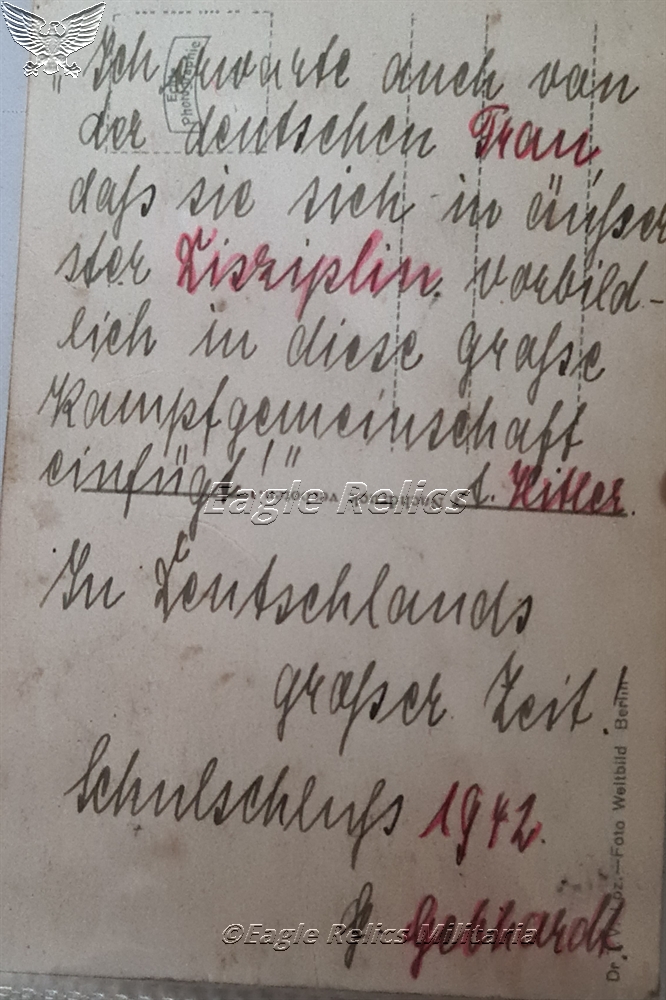 "Ich erwarte auch von
der deutschen Frau,
daß sie sich in äußer
ster Disziplin vorbild-
lich in diese große
Kampfgemeinschaft
einfügt!"
A. Hitler.
In Deutschlands
großer Zeit!
Schulschluß 1942.
Gebhardt
Echte
Photographie
Foto Weltbild Berlin
Eagle Relics
©Eagle Relics Militaria